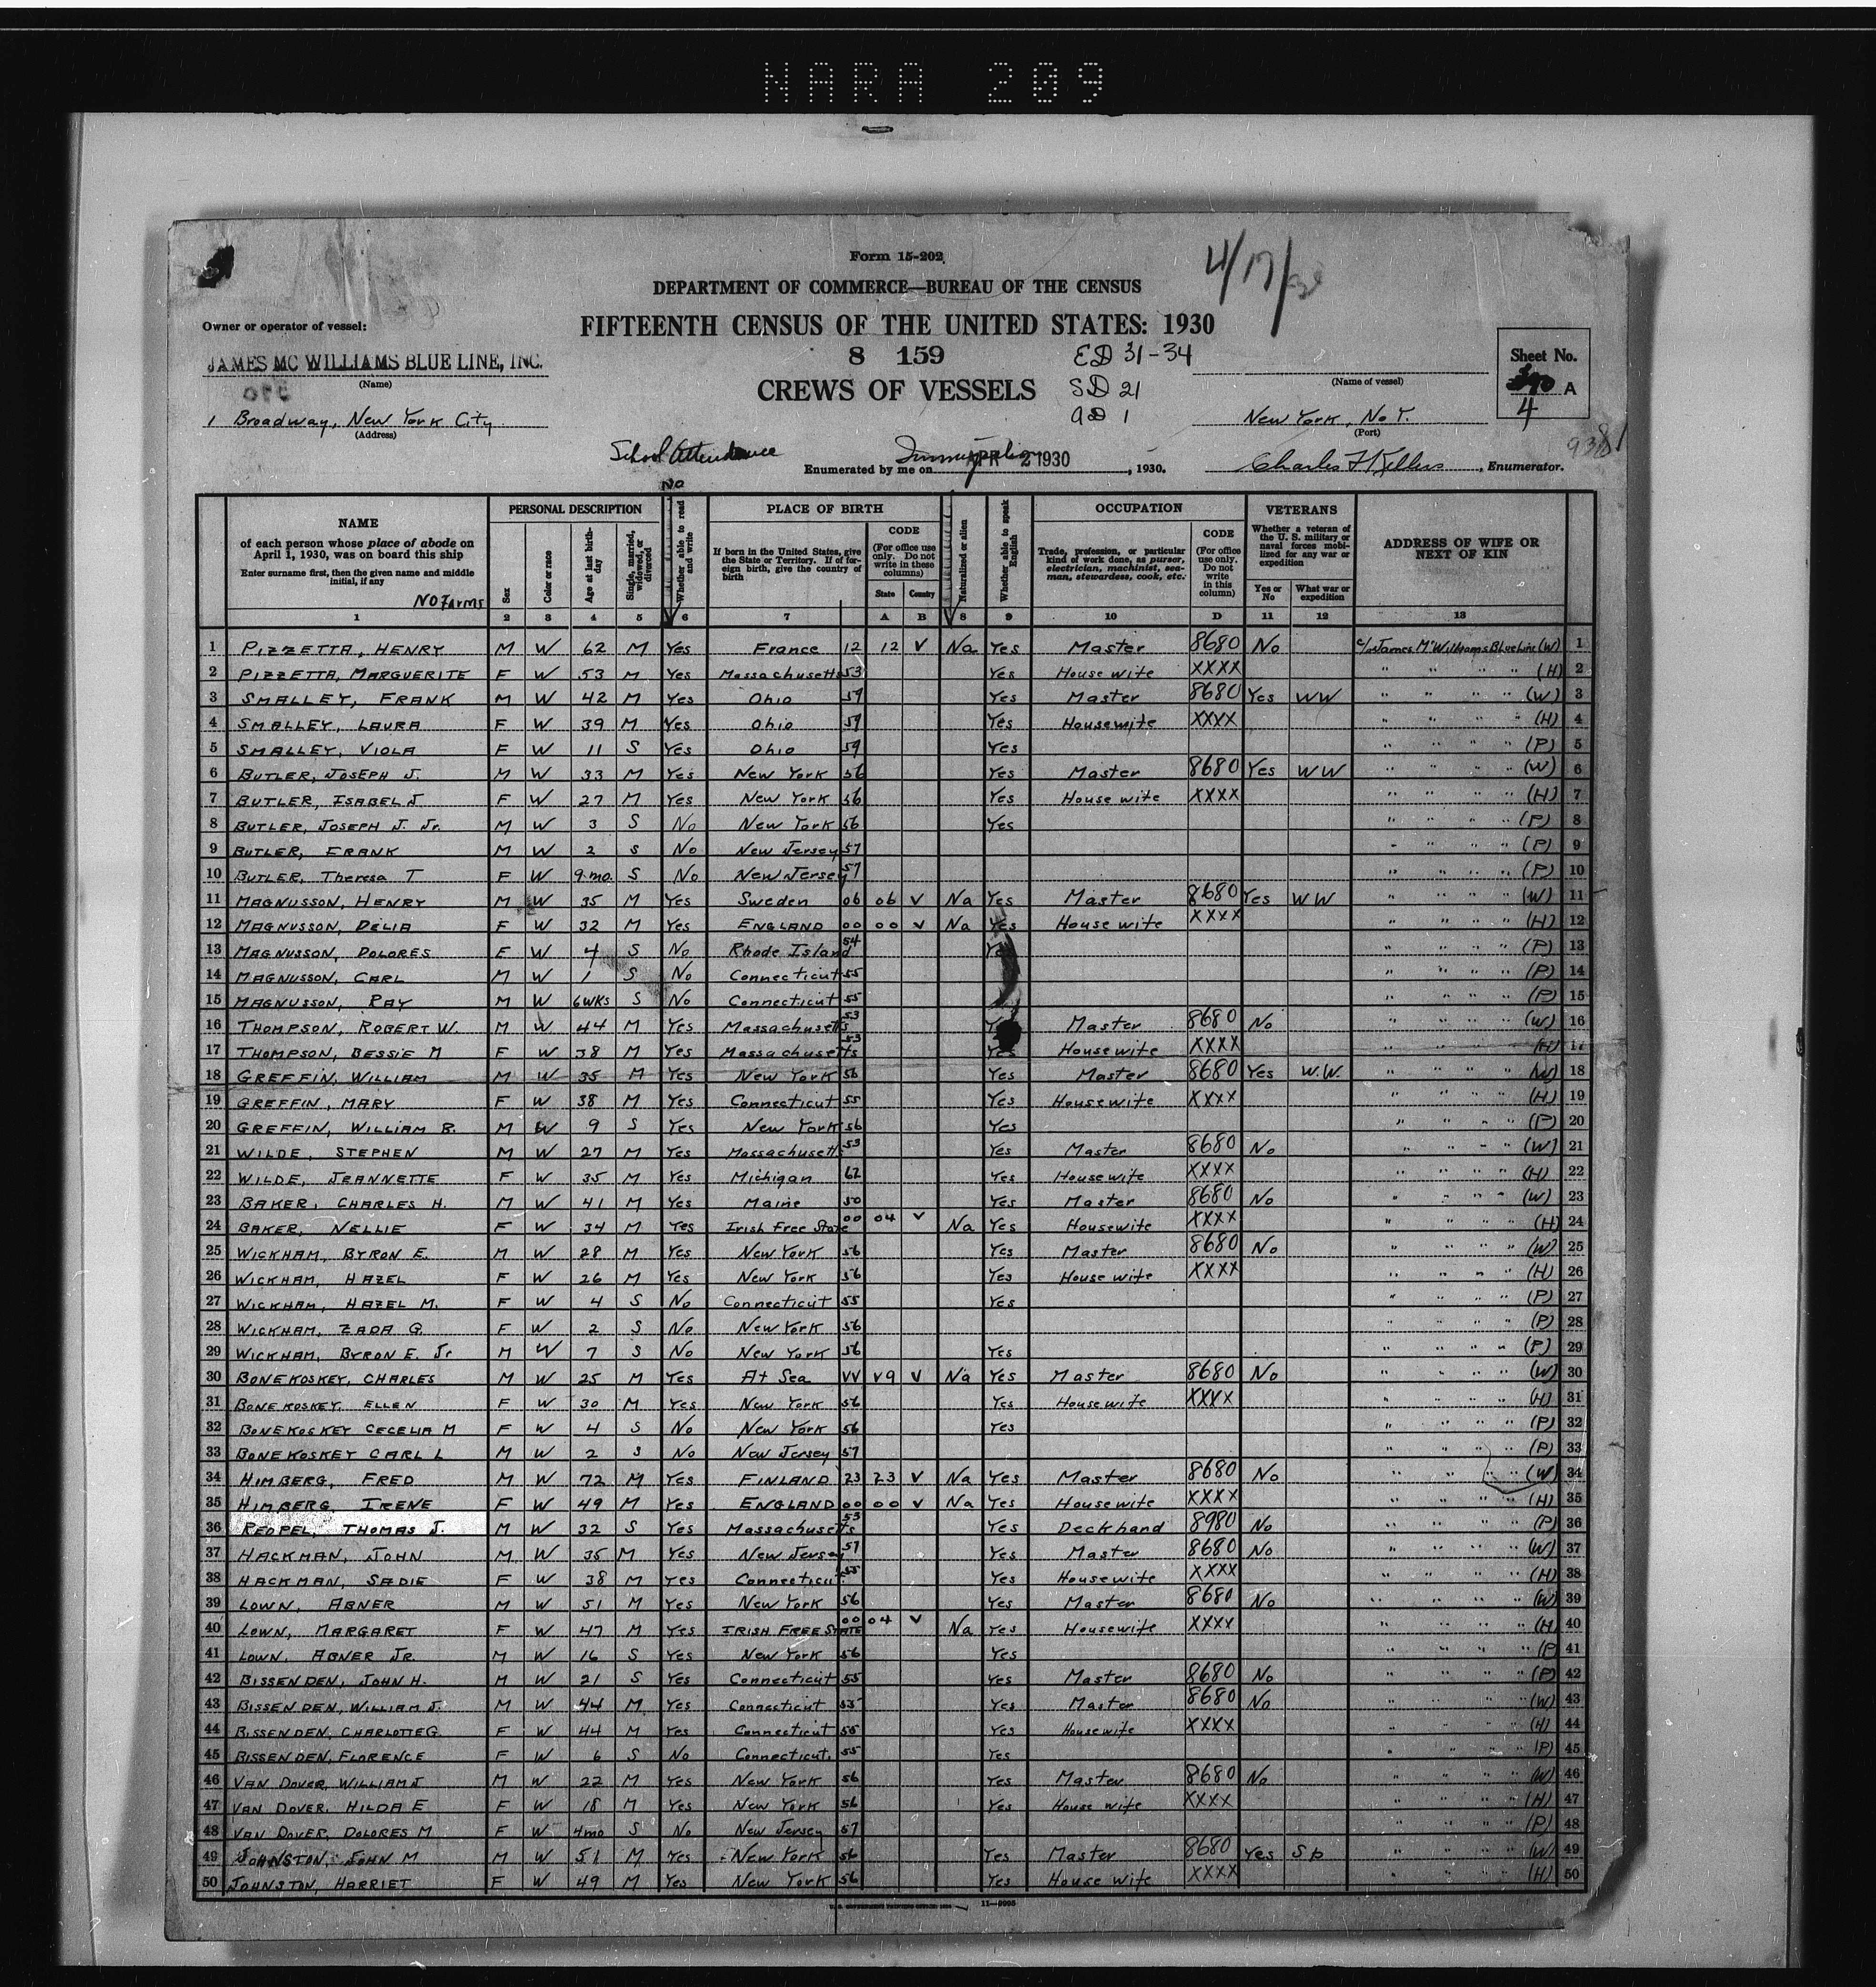 NARA 209
Form 15-202
4/17/30
DEPARTMENT OF COMMERCE—BUREAU OF THE CENSUS
Owner or operator of vessel:
FIFTEENTH CENSUS OF THE UNITED STATES: 1930
JAMES MC WILLIAMS BLUE LINE, INC.
(Name)
8 159
ED 31-34
(Name of vessel)
Sheet No.
A
4
CREWS OF VESSELS
SD 21
1 Broadway, New York City
(Address)
New York, No Y.
(Port)
School Attendance
Enumerated by me on APR 2 1930, 1930.
Charles F Kellers, Enumerator.
No
NAME
of each person whose place of abode on April 1, 1930, was on board this ship
Enter surname first, then the given name and middle initial, if any
NO Farms
PERSONAL DESCRIPTION
Sex
Color or race
Age at last birthday
Single, married, widowed, or divorced
Whether able to read and write
PLACE OF BIRTH
If born in the United States, give the State or Territory. If of foreign birth, give the country of birth
CODE
(For office use only. Do not write in these columns)
State
Country
Naturalized or alien
Whether able to speak English
OCCUPATION
Trade, profession, or particular kind of work done, as purser, electrician, machinist, seaman, stewardess, cook, etc.
CODE
(For office use only. Do not write in this column)
VETERANS
Whether a veteran of the U. S. military or naval forces mobilized for any war or expedition
Yes or No
What war or expedition
ADDRESS OF WIFE OR NEXT OF KIN
1 2 3 4 5 6 7 A B 8 9 10 D 11 12 13
1 PIZZETTA, HENRY M W 62 M Yes France 12 12 V Na Yes Master 8680 No c/o James McWilliams Blue Line (W) 1
2 PIZZETTA, MARGUERITE F W 53 M Yes Massachusetts 53 Yes House wife XXXX " " " " (H) 2
3 SMALLEY, FRANK M W 42 M Yes Ohio 59 Yes Master 8680 Yes WW " " " " (W) 3
4 SMALLEY, LAURA F W 39 M Yes Ohio 59 Yes Housewife XXXX " " " " (H) 4
5 SMALLEY, VIOLA F W 11 S Yes Ohio 59 Yes " " " " (P) 5
6 BUTLER, JOSEPH J. M W 33 M Yes New York 56 Yes Master 8680 Yes WW " " " " (W) 6
7 BUTLER, ISABEL J F W 27 M Yes New York 56 Yes House wife XXXX " " " " (H) 7
8 BUTLER, JOSEPH J. Jr. M W 3 S No New York 56 Yes " " " " (P) 8
9 BUTLER, FRANK M W 2 S No New Jersey 57 " " " " (P) 9
10 BUTLER, Theresa T F W 9 mo. S No New Jersey 57 " " " " (P) 10
11 MAGNUSSON, HENRY M W 35 M Yes Sweden 06 06 V Na Yes Master 8680 Yes WW " " " " (W) 11
12 MAGNUSSON, DELIA F W 32 M Yes ENGLAND 00 00 V Na Yes House wife XXXX " " " " (H) 12
13 MAGNUSSON, DOLORES F W 4 S No Rhode Island 54 Yes " " " " (P) 13
14 MAGNUSSON, CARL M W 1 S No Connecticut 55 " " " " (P) 14
15 MAGNUSSON, RAY M W 6 WKS S No Connecticut 55 " " " " (P) 15
16 THOMPSON, ROBERT W. M W 44 M Yes Massachusetts 53 Master 8680 No " " " " (W) 16
17 THOMPSON, BESSIE M F W 38 M Yes Massachusetts 53 Yes Housewife XXXX " " " " (H) 17
18 GREFFIN, WILLIAM M W 35 M Yes New York 56 Yes Master 8680 Yes W.W. " " " " (W) 18
19 GREFFIN, MARY F W 38 M Yes Connecticut 55 Yes Housewife XXXX " " " " (H) 19
20 GREFFIN, WILLIAM B. M W 9 S Yes New York 56 Yes " " " " (P) 20
21 WILDE, STEPHEN M W 27 M Yes Massachusetts 53 Yes Master 8680 No " " " " (W) 21
22 WILDE, JEANNETTE F W 35 M Yes Michigan 62 Yes Housewife XXXX " " " " (H) 22
23 BAKER, CHARLES H. M W 41 M Yes Maine 50 Yes Master 8680 No " " " " (W) 23
24 BAKER, NELLIE F W 34 M Yes Irish Free State 00 04 V Na Yes Housewife XXXX " " " " (H) 24
25 WICKHAM, BYRON E. M W 28 M Yes New York 56 Yes Master 8680 No " " " " (W) 25
26 WICKHAM, HAZEL F W 26 M Yes New York 56 Yes House wife XXXX " " " " (H) 26
27 WICKHAM, HAZEL M. F W 4 S No Connecticut 55 Yes " " " " (P) 27
28 WICKHAM, ZADA G. F W 2 S No New York 56 " " " " (P) 28
29 WICKHAM, BYRON E. Jr M W 7 S No New York 56 Yes " " " " (P) 29
30 BONEKOSKEY, CHARLES M W 25 M Yes At Sea VV V9 V Na Yes Master 8680 No " " " " (W) 30
31 BONEKOSKEY, ELLEN F W 30 M Yes New York 56 Yes Housewife XXXX " " " " (H) 31
32 BONEKOSKEY CECELIA M F W 4 S No New York 56 Yes " " " " (P) 32
33 BONEKOSKEY CARL L M W 2 S No New Jersey 57 " " " " (P) 33
34 HIMBERG, FRED M W 72 M Yes FINLAND 23 23 V Na Yes Master 8680 No " " " " (W) 34
35 HIMBERG, IRENE F W 49 M Yes ENGLAND 00 00 V Na Yes Housewife XXXX " " " " (H) 35
36 REDPEL, THOMAS J. M W 32 S Yes Massachusetts 53 Yes Deckhand 8980 No " " " " (P) 36
37 HACKMAN, JOHN M W 35 M Yes New Jersey 57 Yes Master 8680 No " " " " (W) 37
38 HACKMAN, SADIE F W 38 M Yes Connecticut 55 Yes Housewife XXXX " " " " (H) 38
39 LOWN, ABNER M W 51 M Yes New York 56 Yes Master 8680 No " " " " (W) 39
40 LOWN, MARGARET F W 47 M Yes IRISH FREE STATE 00 04 V Na Yes Housewife XXXX " " " " (H) 40
41 LOWN, ABNER JR. M W 16 S Yes New York 56 Yes " " " " (P) 41
42 BISSENDEN, JOHN H. M W 21 S Yes Connecticut 55 Yes Master 8680 No " " " " (P) 42
43 BISSENDEN, WILLIAM J. M W 44 M Yes Connecticut 55 Yes Master 8680 No " " " " (W) 43
44 BISSENDEN, CHARLOTTE G. F W 44 M Yes Connecticut 55 Yes Housewife XXXX " " " " (H) 44
45 BISSENDEN, FLORENCE F W 6 S No Connecticut. 55 Yes " " " " (P) 45
46 VAN DOVER, WILLIAM J M W 22 M Yes New York 56 Yes Master 8680 No " " " " (W) 46
47 VAN DOVER, HILDA E F W 18 M Yes New York 56 Yes House wife XXXX " " " " (H) 47
48 VAN DOVER, DOLORES M F W 4mo S No New Jersey 57 " " " " (P) 48
49 JOHNSTON, JOHN M M W 51 M Yes New York 56 Yes Master 8680 Yes Sp " " " " (W) 49
50 JOHNSTON, HARRIET F W 49 M Yes New York 56 Yes House wife XXXX " " " " (H) 50
U. S. GOVERNMENT PRINTING OFFICE